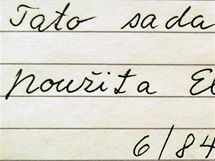 Tato sada
použita El
6/84